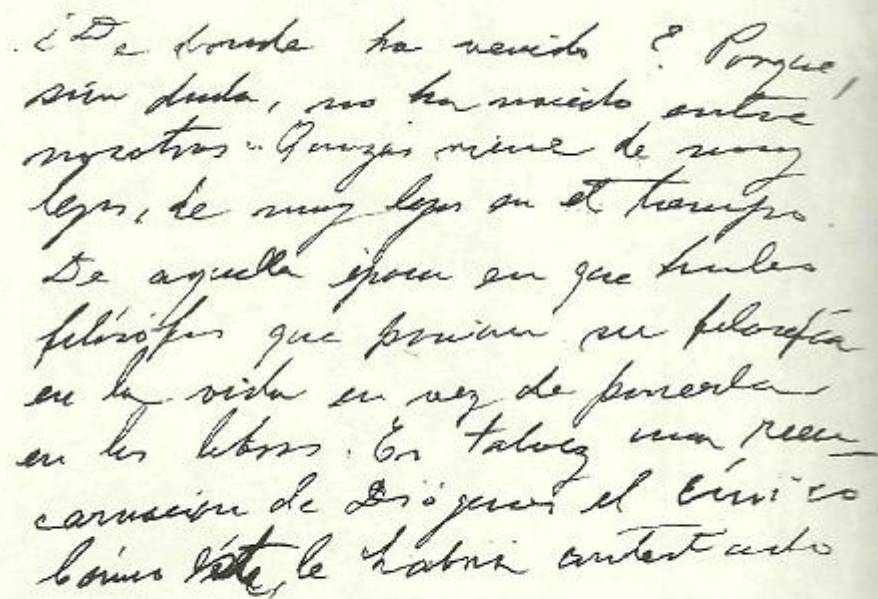 ¿De donde ha venido? Porque,
sin duda, no ha nacido entre
nosotros. Quizás viene de muy
lejos, de muy lejos en el tiempo
De aquella época en que hubo
filósofos que ponian su filosofía
en la vida en vez de ponerla
en los libros. Es talvez una reen-
carnación de Diógenes el cínico
Cómo éste, le habría contestado